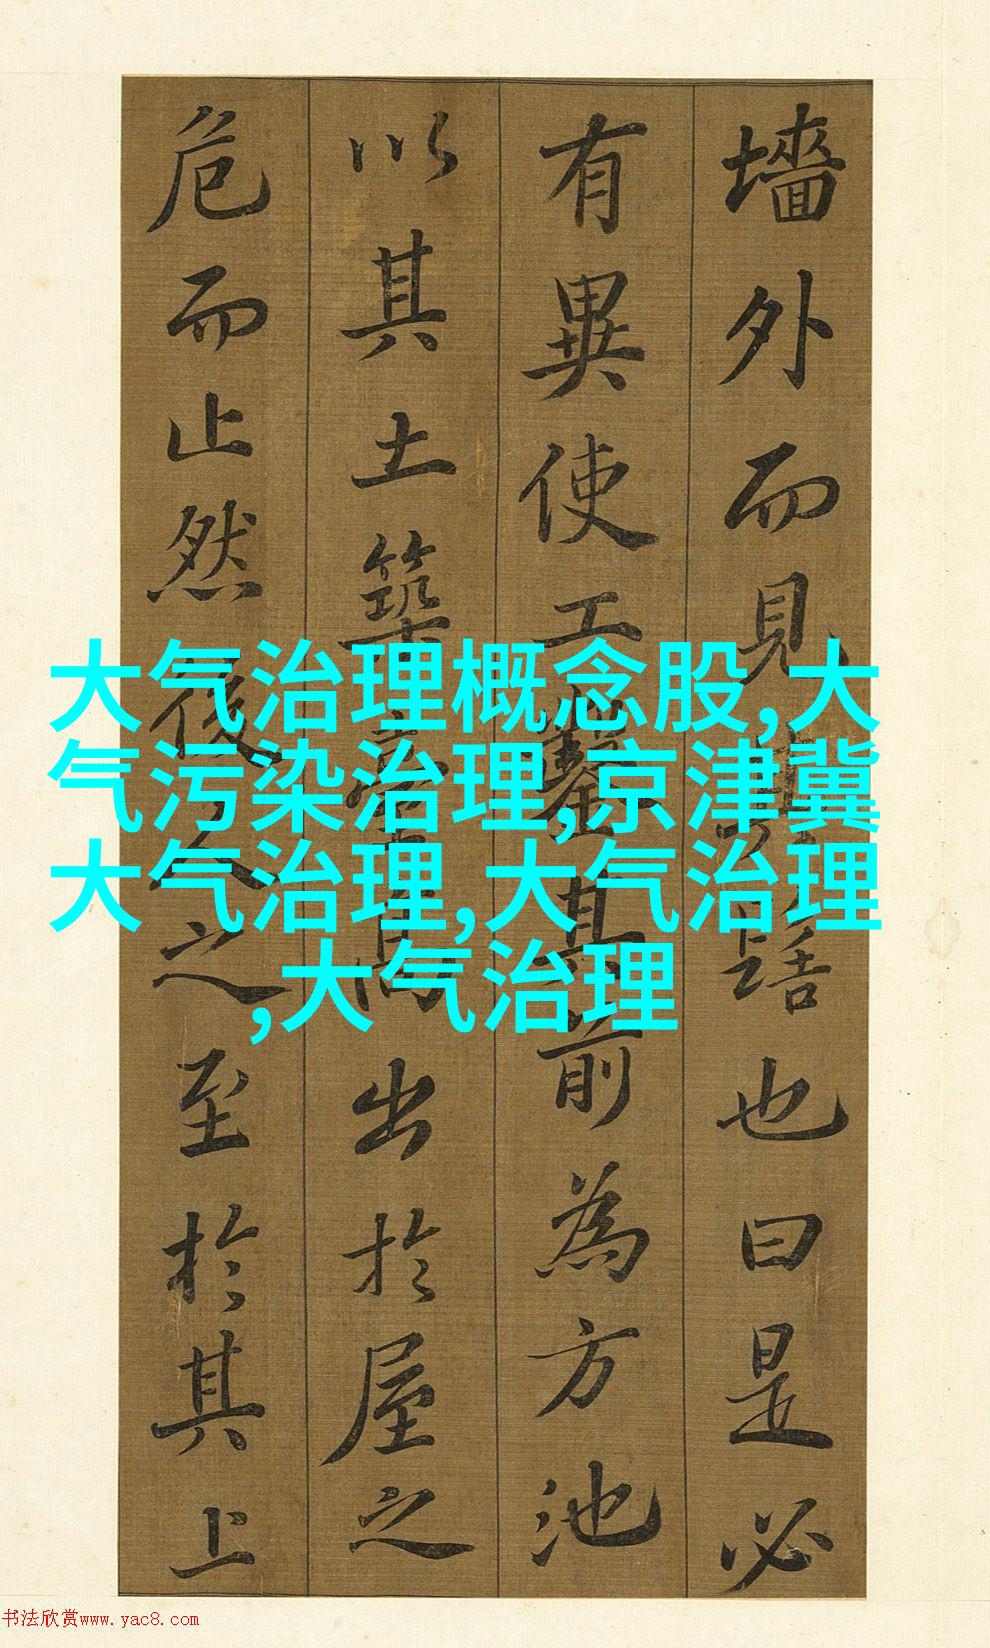 墻外而見其髻也曰是必
有異使工鑿其前為方池
以其土築臺高出於屋之
危而止然後人之至於其上
大气治理概念股,大
气污染治理,京津冀
大气治理,大气治理
,大气治理
书法欣赏www.yac8.com